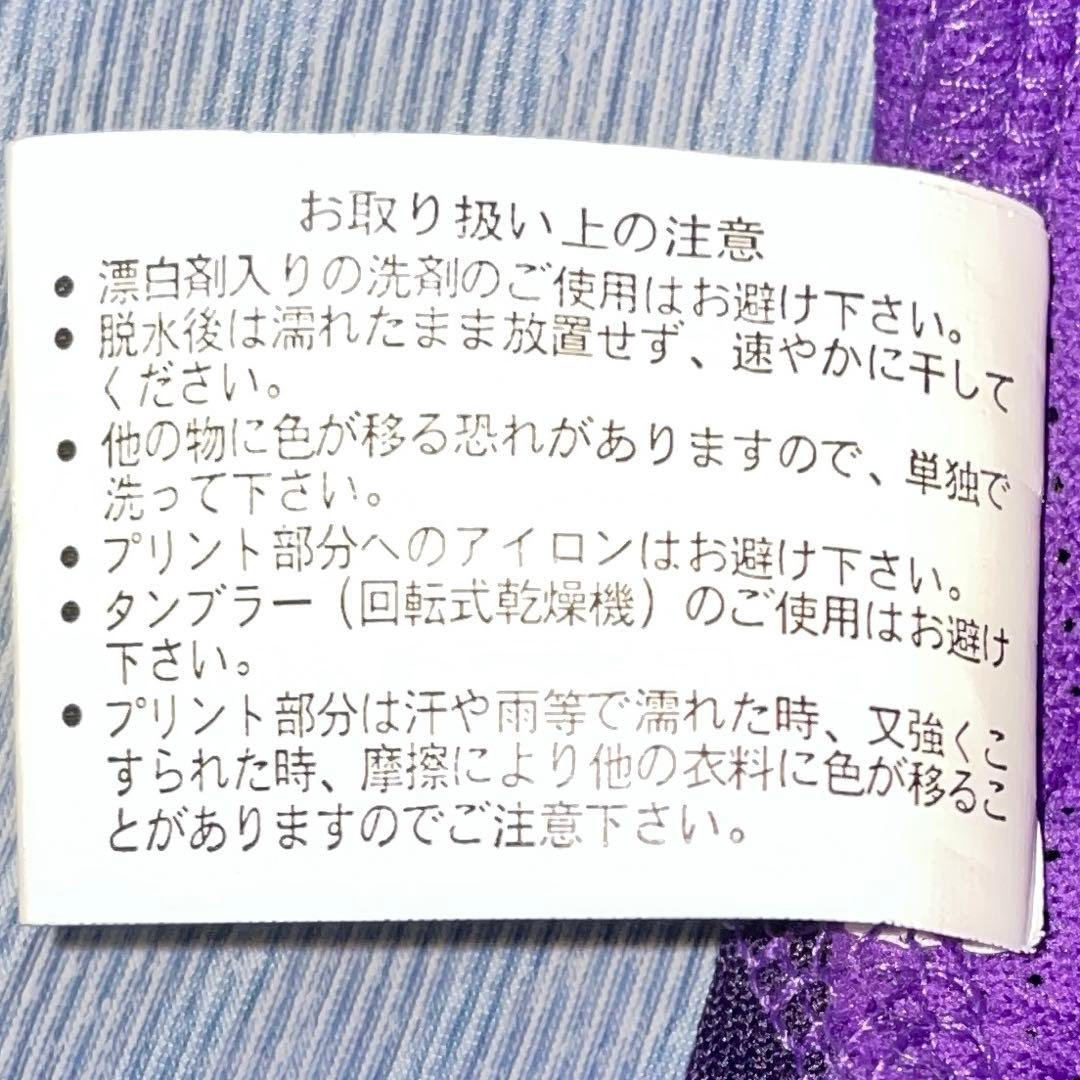 お取り扱い上の注意
● 漂白剤入りの洗剤のご使用はお避け下さい。
● 脱水後は濡れたまま放置せず、速やかに干して
ください。
● 他の物に色が移る恐れがありますので、単独で
洗って下さい。
● プリント部分へのアイロンはお避け下さい。
● タンブラー（回転式乾燥機）のご使用はお避け
下さい。
● プリント部分は汗や雨等で濡れた時、又強くこ
すられた時、摩擦により他の衣料に色が移るこ
とがありますのでご注意下さい。